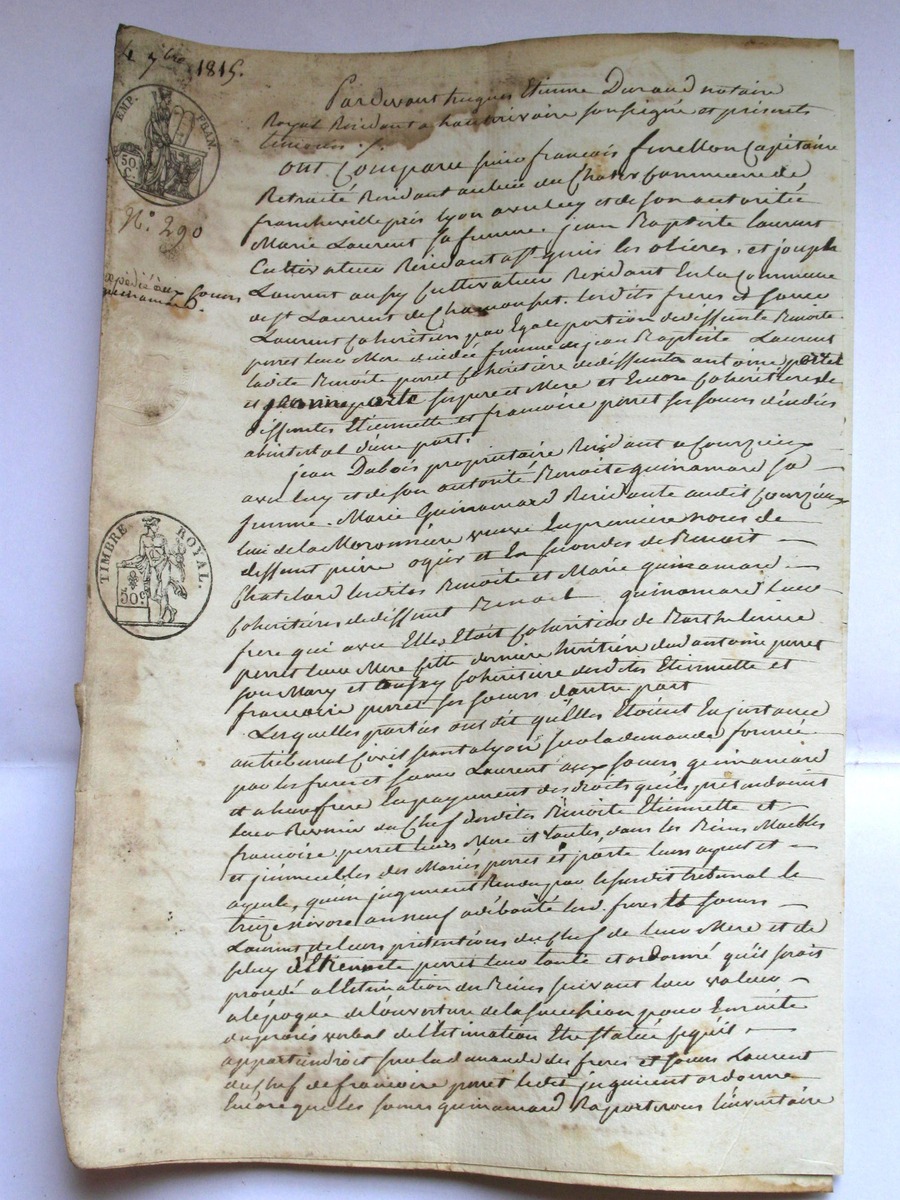 4 7bre 1815.
EMP. FRAN.
50
C.
N.o 290
expédié aux sœurs
quinamard.
TIMBRE ROYAL.
50.c
Pardevant hugues Etienne Durand notaire
Royal Résidant a hauterivoire soussigné et présents
temoins ./.
ont Comparu françois furellon Capitaine
Retraité Résidant au lieu du Chater Commune de
francheville près lyon avec luy et de son autorité
Marie Laurent sa femme, jean Baptiste laurent
Cultivateur Résidant a st genis les olieres, et joseph
Laurent aussy Cultivateur Résidant En la Commune
de st Laurent de Chamousset, lesdits freres et sœur
Laurent Cohéritiers par Egale portion de deffunte Benoite
perret leur Mere décédée femme de jean Baptiste Laurent
ladite Benoite perret Cohéritiere de deffunts antoine perret
et jeanne parte ses pere et Mere et Encore Cohéritiere de
deffuntes Etiennette et francoise perret ses sœurs décédées
abintestat d'une part.
jean Dubois propriétaire Résidant a Courzieux
avec luy et de son autorité Benoite quinamard sa
femme, Marie Quinamard Résidante audit Courzieux
lieu de la Moronnière veuve En premiere noces de
deffunt pierre ogier et En secondes de Benoit
Chatelard lesdites Benoite et Marie quinamard
Cohéritieres de deffunt Benoit quinamard leur
frere qui avec Elles Etoit Cohéritier de Barthelemie
perret leur Mere cette derniere héritiere dud antoine perret
son Mary et aussy Cohéritiere desdites Etiennette et
francoise perret ses sœurs d'autre part
Lesquelles parties ont dit qu'Elles Etoient En instance
au tribunal Civil séant a lyon sur la demande formée
par les freres et sœur Laurent aux sœurs quinamard
et a leur frere En payement des droits qu'ils prétendoient
leur Revenir du Chef desdites Benoite Etiennette et
francoise perret leurs Mere et tantes dans les Biens Meubles
et jmmeubles des Mariés perret et parte leurs ayeul et
ayeule, qu'un jugement Rendu par le susdit tribunal le
treize nivose an neuf a débouté lesd. freres et sœurs
Laurent de leurs prétentions du chef de leur Mere et de
celuy d'Etiennette perret leur tante et ordonné qu'il seroit
procédé a l'Estimation des Biens suivant leur valeur
a l'époque de l'ouverture de la succession pour Ensuite
du procès verbal de l'Estimation Etre statué ce qu'il
appartiendroit sur la demande des freres et sœur Laurent
du chef de francoise perret ledit jugement ordonne
Encore que les sœurs quinamard Raporterons l'inventaire